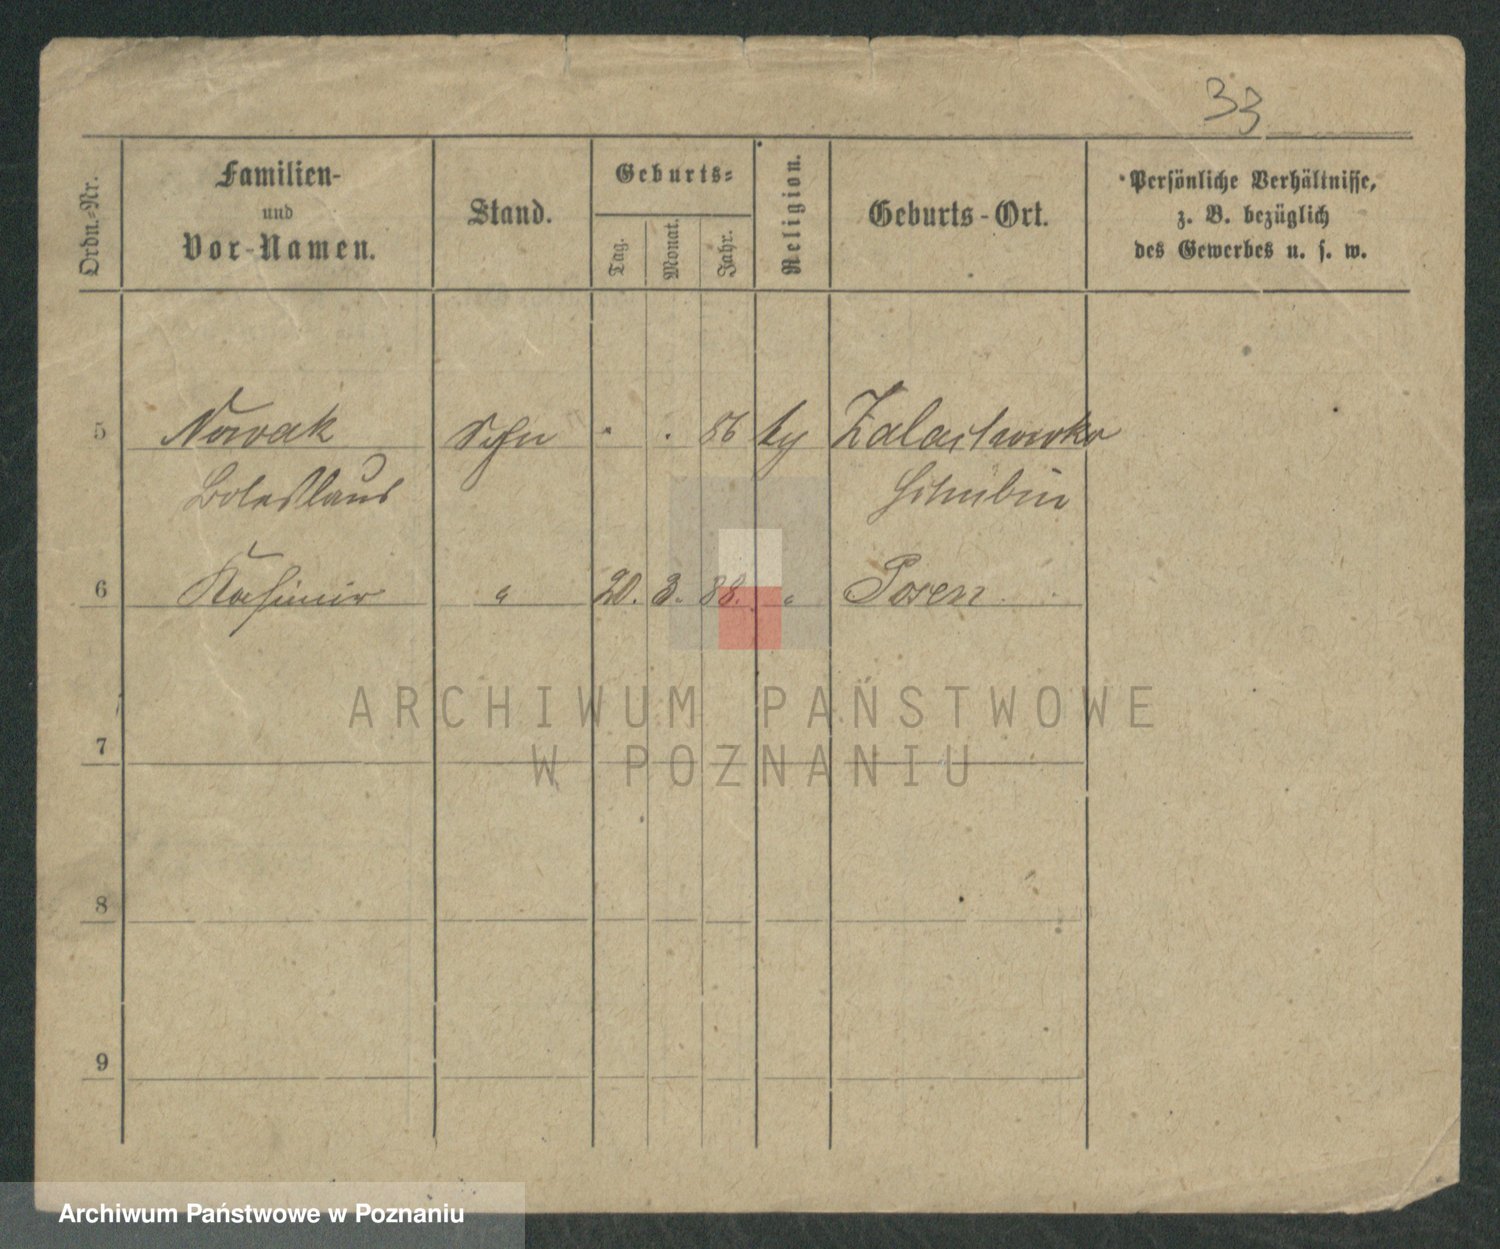 33
Ordn.-Nr.
Familien-
und
Vor-Namen.
Stand.
Geburts-
Tag.
Monat.
Jahr.
Religion.
Geburts-Ort.
Persönliche Verhältnisse,
z. B. bezüglich
des Gewerbes u. s. w.
5 Nowak Sohn . . 86
Boleslaus Schubin
6 Kasimir " 20. 3. 88. " Posen
ARCHIWUM PAŃSTWOWE
7
W POZNANIU
8
9
Archiwum Państwowe w Poznaniu